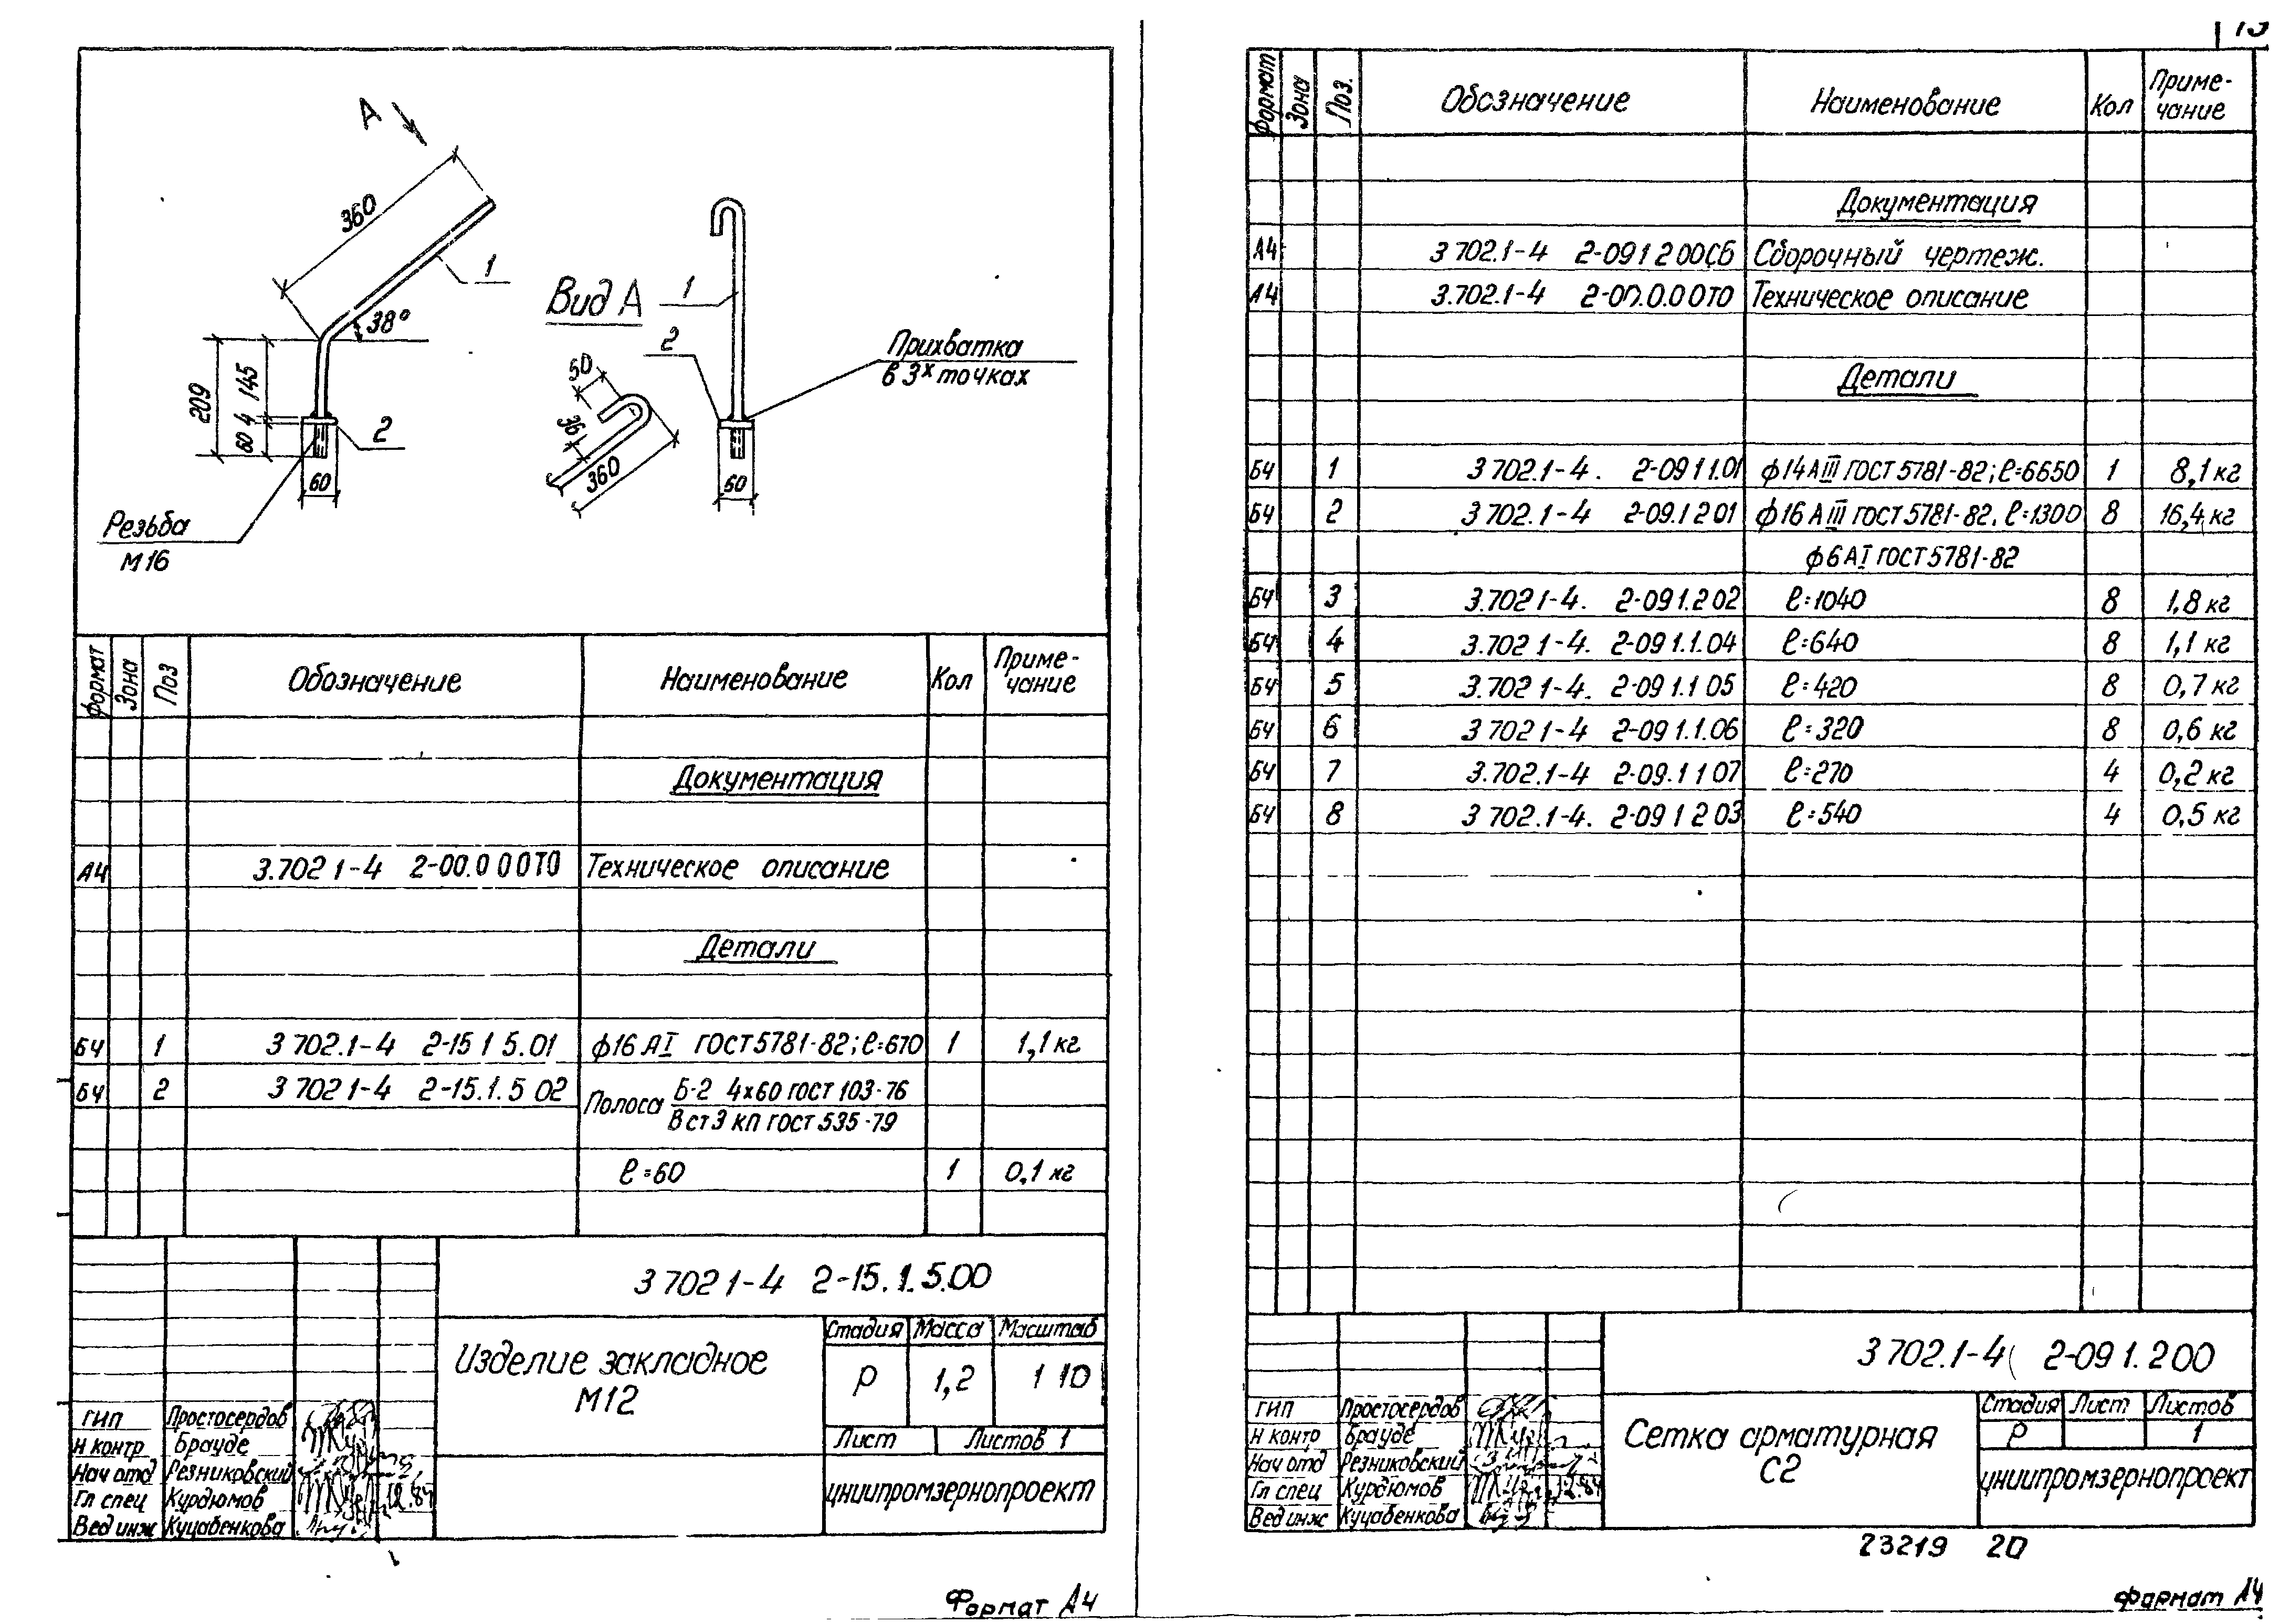 А
360
1
38°
209
145
4
60
2
60
Резьба
М16
Вид А
1
2
Прихватка
в 3х точках
50
36
360
60
Формат Зона Поз Обозначение Наименование Кол Приме-
чание
Документация
А4 3.702 1-4 2-00.0 0 0ТО Техническое описание
Детали
БЧ 1 3 702.1-4 2-15 1 5.01 ф16 АI ГОСТ 5781-82; ℓ=670 1 1,1 кг
БЧ 2 3 702 1-4 2-15.1.5 02 Полоса Б-2 4х60 ГОСТ 103-76
В ст 3 кп ГОСТ 535-79
ℓ=60 1 0,1 кг
3 702 1-4 2-15.1.5.00
Изделие закладное
М12
Стадия Масса Масштаб
Р 1,2 1 10
Лист Листов 1
ЦНИИпромзернопроект
ГИП Простосердов
Н контр Брауде
Нач отд Резниковский
Гл спец Курдюмов 12.84
Вед инж Куцабенкова
Формат А4
Формат Зона Поз. Обозначение Наименование Кол Приме-
чание
Документация
А4 3 702.1-4 2-09 1 2 00СБ Сборочный чертеж.
А4 3.702.1-4 2-00.0.0 0ТО Техническое описание
Детали
БЧ 1 3 702.1-4. 2-09 1 1.01 ф14 АIII ГОСТ 5781-82; ℓ=6650 1 8,1 кг
БЧ 2 3 702.1-4 2-09.1 2 01 ф16 АIII ГОСТ 5781-82. ℓ=1300 8 16,4 кг
ф6 АI ГОСТ 5781-82
БЧ 3 3.702 1-4. 2-09 1.2 02 ℓ=1040 8 1,8 кг
БЧ 4 3.702 1-4. 2-09 1.1.04 ℓ=640 8 1,1 кг
БЧ 5 3.702 1-4. 2-09 1.1 05 ℓ=420 8 0,7 кг
БЧ 6 3 702 1-4 2-09 1.1.06 ℓ=320 8 0,6 кг
БЧ 7 3.702.1-4 2-09.1 1 07 ℓ=270 4 0,2 кг
БЧ 8 3 702.1-4. 2-09 1 2 03 ℓ=540 4 0,5 кг
3 702.1-4 2-09 1.2 00
Сетка арматурная
С2
Стадия Лист Листов
Р 1
ЦНИИпромзернопроект
ГИП Простосердов
Н контр Брауде
Нач отд Резниковский
Гл спец Курдюмов 12.84
Вед инж Куцабенкова
23219 20
Формат А4